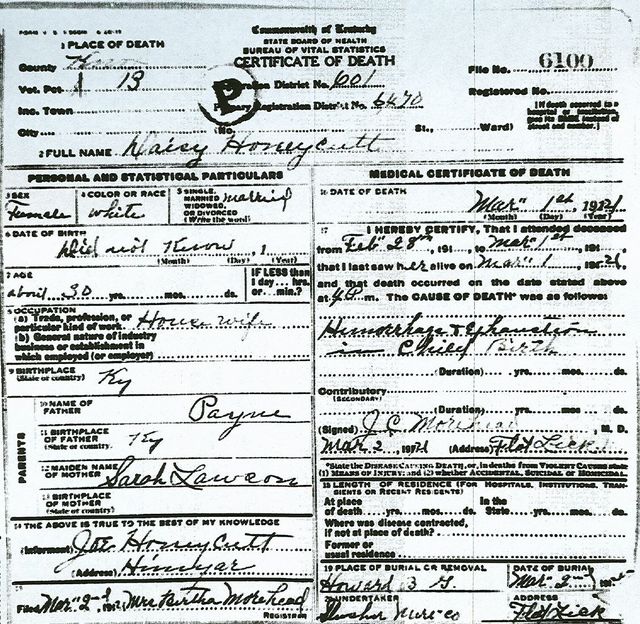 Commonwealth of Kentucky
STATE BOARD OF HEALTH
BUREAU OF VITAL STATISTICS
CERTIFICATE OF DEATH
1 PLACE OF DEATH
County
Vot. Pct 13
Inc. Town
City
Registration District No. 601
Primary Registration District No. 6470
(No. St., Ward)
File No. 6100
Registered No.
[If death occurred in a hospital or institution, give its NAME instead of street and number.]
2 FULL NAME Daisy Honeycutt
PERSONAL AND STATISTICAL PARTICULARS
3 SEX Female
4 COLOR OR RACE White
5 SINGLE, MARRIED, WIDOWED, OR DIVORCED (Write the word) Married
6 DATE OF BIRTH
Did not Know, 1
(Month) (Day) (Year)
7 AGE
about 30 yrs. mos. ds.
IF LESS than 1 day... hrs. or... min.?
8 OCCUPATION
(a) Trade, profession, or particular kind of work House wife
(b) General nature of industry
business or establishment in
which employed (or employer)
9 BIRTHPLACE
(State or country) Ky
PARENTS
10 NAME OF FATHER Payne
11 BIRTHPLACE OF FATHER (State or country) Ky
12 MAIDEN NAME OF MOTHER Sarah Lawson
13 BIRTHPLACE OF MOTHER (State or country)
14 THE ABOVE IS TRUE TO THE BEST OF MY KNOWLEDGE
(Informant) Joe Honeycutt
(Address) Himyar
Filed Mar 2nd, 191 Mrs Bertha Morehead
REGISTRAR
MEDICAL CERTIFICATE OF DEATH
16 DATE OF DEATH
Mar 1st, 1921
(Month) (Day) (Year)
17 I HEREBY CERTIFY, That I attended deceased
from Feb 28th, 191 , to Mar 1st, 191 ,
that I last saw her alive on Mar 1, 1921,
and that death occurred on the date stated above
at 4 P m. The CAUSE OF DEATH* was as follows:
Hemorrhage & Exhaustion
in Child Birth
(Duration) yrs. mos. ds.
Contributory
(SECONDARY)
(Duration) yrs. mos. ds.
(Signed) J.C. Morehead, M. D.
Mar 2, 1921 (Address) Flat Lick
*State the DISEASE CAUSING DEATH, or, in deaths from VIOLENT CAUSES state
(1) MEANS OF INJURY; and (2) whether ACCIDENTAL, SUICIDAL or HOMICIDAL.
18 LENGTH OF RESIDENCE (FOR HOSPITALS, INSTITUTIONS, TRANSIENTS OR RECENT RESIDENTS)
At place of death yrs. mos. ds. In the State yrs. mos. ds.
Where was disease contracted,
if not at place of death?
Former or
usual residence
19 PLACE OF BURIAL OR REMOVAL
Howard B G
DATE OF BURIAL
Mar 2
20 UNDERTAKER
ADDRESS
Flat Lick